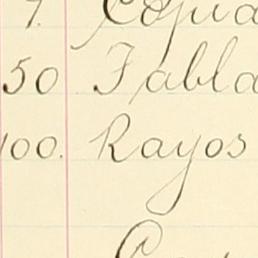 7. Copia
50 Tabla
100. Rayos